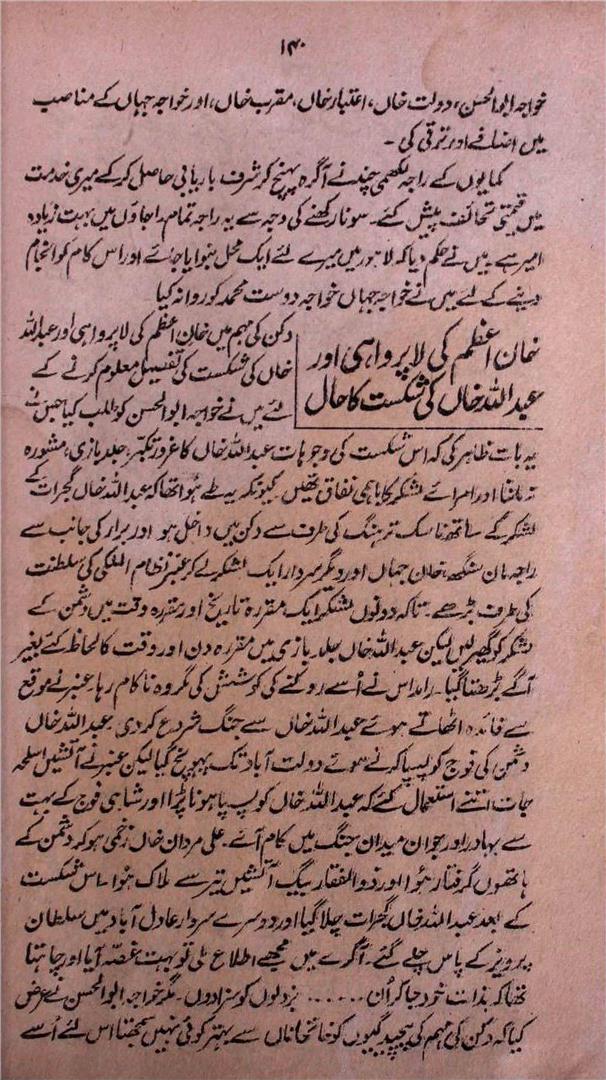 ۱۴۰
خواجہ ابوالحسن، دولت خاں، اعتبار خاں، مقرب خاں، اور خواجہ جہاں کے مناصب
میں اضافے اور ترقی کی ۔
کمایوں کے راجہ لکھمی چند نے آگرہ پہنچ کر شرف باریابی حاصل کر کے میری خدمت
میں قیمتی تحائف پیش کئے۔ سونا رکھنے کی وجہ سے یہ راجہ تمام راجاؤں میں بہت زیادہ
امیر ہے۔ میں نے حکم دیا کہ لاہور میں میرے لئے ایک محل بنوایا جائے اور اس کام کو انجام
دینے کے لئے میں نے خواجہ جہاں خواجہ دوست محمد کو روانہ کیا
خان اعظم کی لاپرواہی اور
عبد اللہ خاں کی شکست کا حال
دکن کی مہم میں خان اعظم کی لاپرواہی اور عبداللہ
خاں کی شکست کی تفصیل معلوم کرنے کے
لئے میں نے خواجہ ابوالحسن کو طلب کیا جس نے
یہ بات ظاہر کی کہ اس شکست کی وجوہات عبداللہ خاں کا غرور تکبر، جلد بازی، مشورہ
نہ ماننا اور امرائے لشکر کا باہمی نفاق تھیں۔ کیونکہ یہ طے ہوا تھا کہ عبداللہ خاں گجرات کے
لشکر کے ساتھ ناسک تر ہنگ کی طرف سے دکن میں داخل ہو اور برار کی جانب سے
راجہ مان سنگھ، خان جہاں اور دیگر سردار ایک لشکر لے کر عنبر نظام الملکی کی سلطنت
کی طرف بڑھے۔ تاکہ دونوں لشکر ایک مقررہ تاریخ اور مقررہ وقت میں دشمن کے
لشکر کو گھیر لیں لیکن عبداللہ خاں جلد بازی میں مقررہ دن اور وقت کا لحاظ کئے بغیر
آگے بڑھتا گیا۔ رامداس نے اُسے روکنے کی کوشش کی مگر وہ ناکام رہا۔ عنبر نے موقع
سے فائدہ اٹھاتے ہوئے عبداللہ خاں سے جنگ شروع کر دی۔ عبداللہ خاں
دشمن کی فوج کو پسپا کرتے ہوئے دولت آباد تک پہونچ گیا لیکن عنبر نے آتشیں اسلحہ
جات اتنے استعمال کئے کہ عبداللہ خاں کو پسپا ہونا پڑا اور شاہی فوج کے بہت
سے بہادر اور جوان میدان جنگ میں کام آئے۔ علی مردان خاں زخمی ہو کر دشمن کے
ہاتھوں گرفتار ہوا اور ذوالفقار بیگ آتشیں تیر سے ہلاک ہوا۔ اس شکست
کے بعد عبداللہ خاں گجرات چلا گیا اور دوسرے سردار عادل آباد میں سلطان
پرویز کے پاس چلے گئے۔ آگرے میں مجھے اطلاع ملی تو بہت غصہ آیا اور چاہتا
تھا کہ بذات خود جا کر اُن ...... بزدلوں کو سزا دوں۔ مگر خواجہ ابوالحسن نے عرض
کیا کہ دکن کی مہم کی پیچیدگیوں کو خانخاناں سے بہتر کوئی نہیں سمجھتا اس لئے اُسے